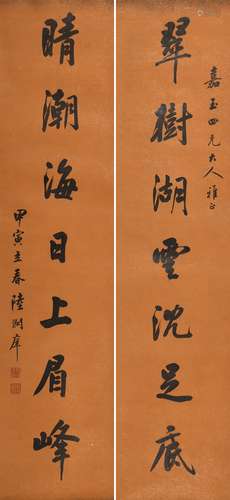 嘉玉四兄大人雅正
翠樹湖雲沈足底
晴潮海日上眉峰
甲寅立春陸潤庠